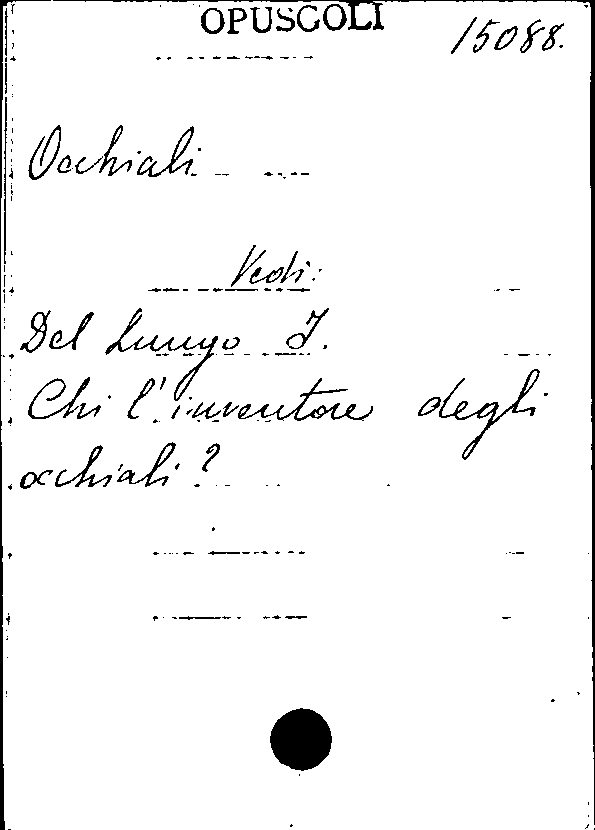 OPUSCOLI
15088.
Occhiali
Vedi:
Del Lungo I.
Chi l'inventore degli
occhiali?